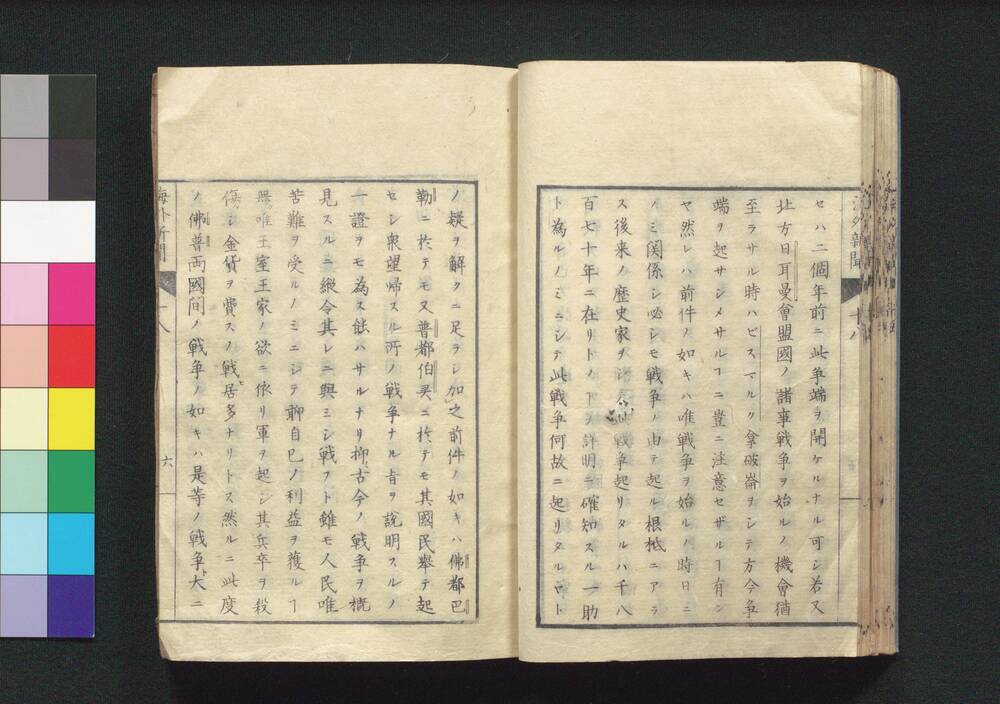 海外新聞
十八
セハ二個年前ニ此争端ヲ開ケルナル可シ若又
北方日耳曼會盟國ノ諸事戦争ヲ始ルノ機會猶
至ラサル時ハビスマルリ拿破崙ヲシテ方今争
端ヲ起サシメサルヿニ豈ニ注意セザルヿ有ン
ヤ然レハ前件ノ如キハ唯戦争ヲ始ルノ時日ニ
ノミ関係シ必シモ戦争ノ由テ起ル根柢ニアラ
ス後来ノ歴史家ヲシ今此戦争起リタルハ千八
百七十年ニ在リトノヿヲ詳明ニ確知スル一助
ト為ルノミニシテ此戦争何故ニ起リタルロト
ノ疑ヲ解クニ足ラシ加之前件ノ如キハ佛都巴
勒ニ於テモ又普都伯灵ニ於テモ其國民擧テ起
セシ衆望帰スル所ノ戦争ナル旨ヲ説明スルノ
一證ヲモ為ス能ハサルナリ抑古今ノ戦争ヲ概
見スルニ縦令其レニ與ミシ戦フト雖モ人民唯
苦難ヲ受ルノミニシテ聊自己ノ利益ヲ獲ルヿ
無唯王室王家ノ欲ニ依リ軍ヲ起シ其兵卒ヲ殺
傷シ金貨ヲ費スノ戦居多ナリトス然ルニ此度
ノ佛普両國間ノ戦争ノ如キハ是等ノ戦争大ニ
海外新聞
十八
六